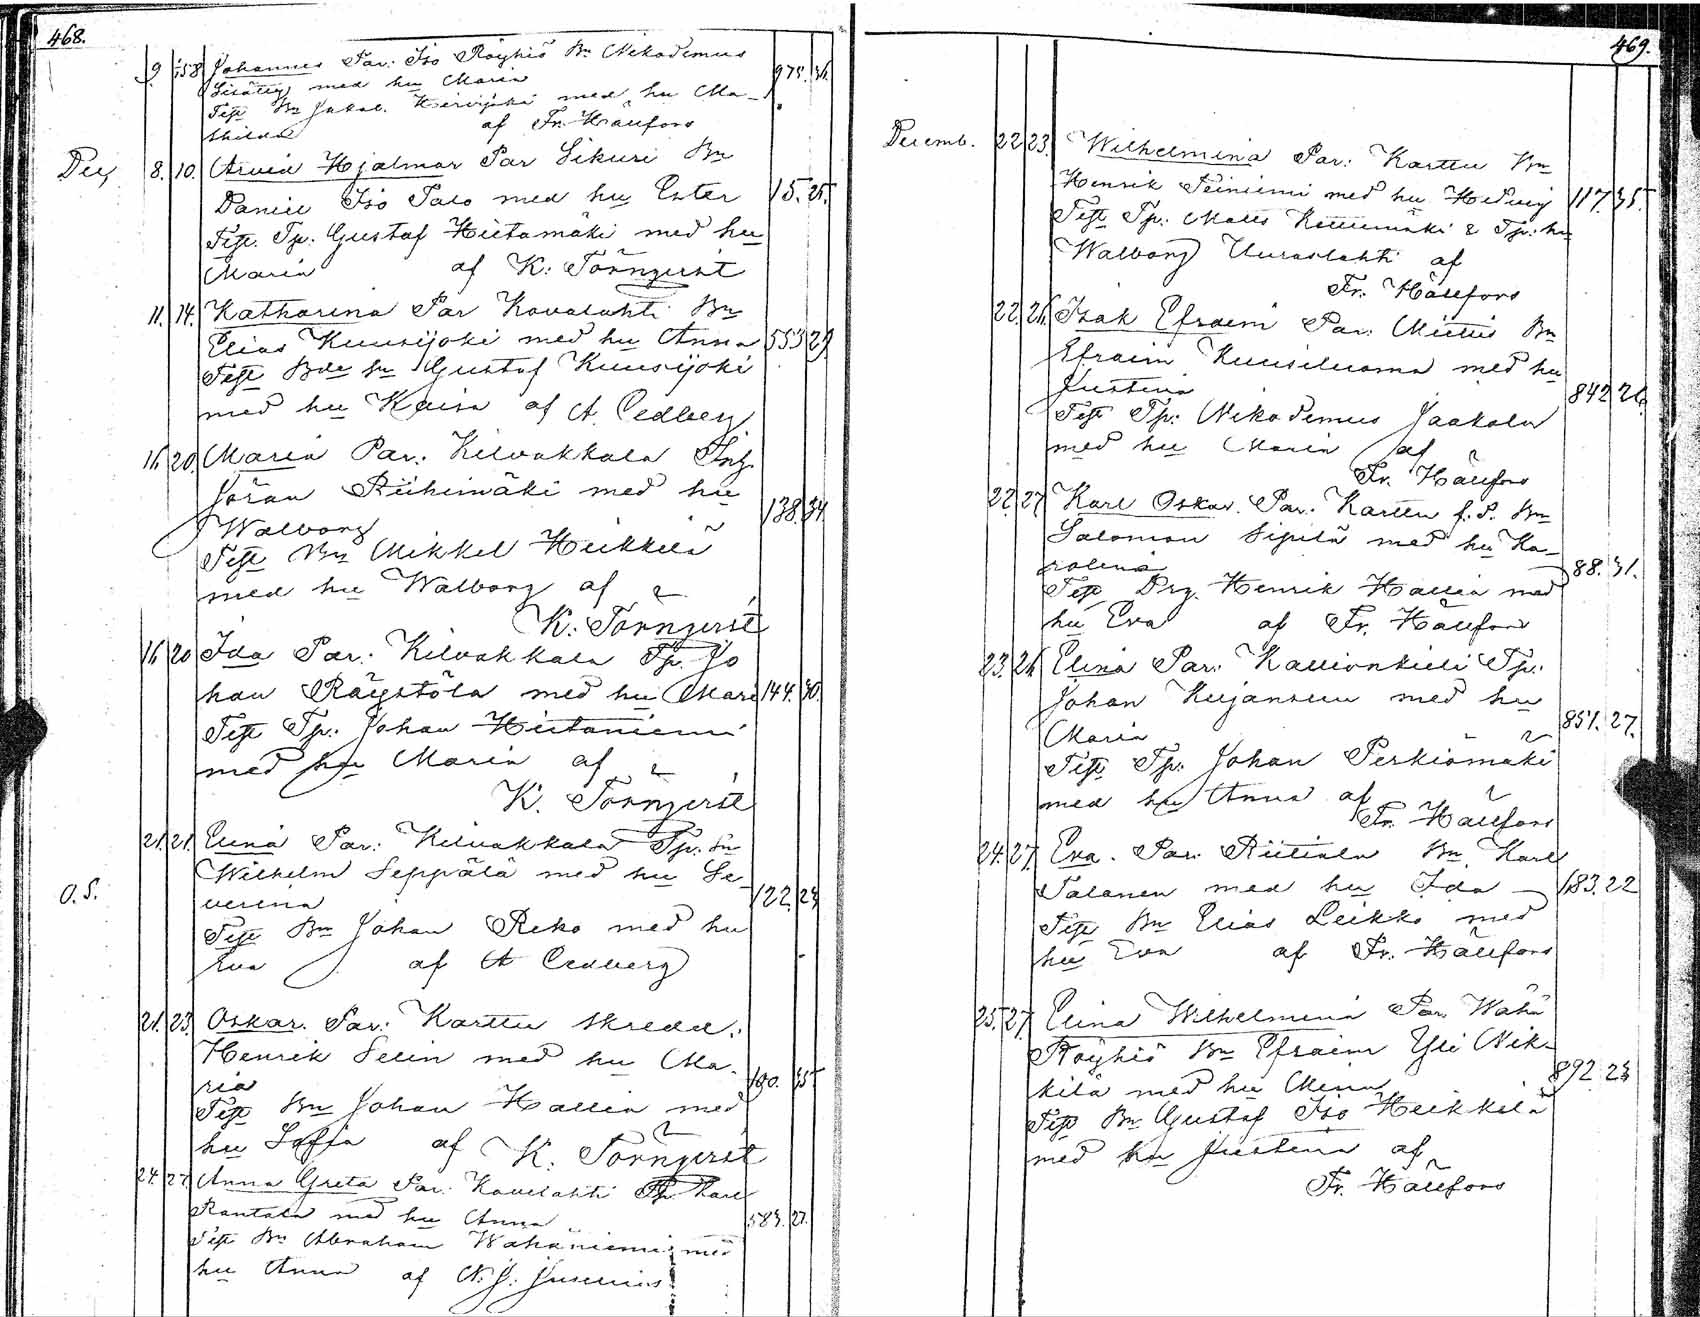 468.
9. 158 Johannes Par: Iso Röyhiö Bn Nikodemus 975. 36.
med hu Maria
Test Bn Jakob. Hirvijoki med hu Ma-
thilda af Fr. Hällfors
Dec 8. 10. Arvid Hjalmar Par Sikuri Bn
Daniel Iso Talo med hu Ester 15. 25.
Test. Tp. Gustaf Hietamäki med hu
Maria af K: Törnqvist
11. 14. Katharina Par Kovalahti Bn
Elias Kuusijoki med hu Anna 553 29
Test Bde sn Gustaf Kuusijoki
med hu Kaisa af A. Cedberg
16 20. Maria Par: Kilvakkala Inh.
Jöran Riihimäki med hu
Walborg 138. 34
Test Bn Mikkel Heikkilä
med hu Walborg af
K: Törnqvist
16 20 Ida Par: Kilvakkala Tp. Jo
han Räystölä med hu Mari 144. 30.
Test Tp: Johan Hietaniemi
med hu Maria af
K. Törnqvist
21. 21. Elina Par: Kilvakkala Tp. sn
Wilhelm Seppälä med hu Se-
O.S. verina 122. 24
Test Bn Johan Reko med hu
Eva af A Cedberg
21. 23. Oskar. Par: Karttu skredd.:
Henrik Selin med hu Ma-
ria 100. 35
Test Bn Johan Hallia med
hu Soffia af K. Törnqvist
24. 27. Anna Greta Par: Kovelahti Tp Karl
Rantala med hu Anna 583. 27.
Test Bn Abraham Wähäniemi med
hu Anna af N. J. Juselius
469.
Decemb. 22 23. Wilhelmina Par: Karttu Bn
Henrik Peiniemi med hu Hedvig 117. 35.
Test Tp: Matts Kettumäki & Tp: hu
Walborg Uuraslahti af
Fr. Hällfors
22. 26. Isak Efraim Par: Miettis Bn
Efraim Kuusiluoma med hu
Justina 842 26.
Test Tp: Nikodemus Jaakola
med hu Maria af
Fr. Hällfors
22. 27 Karl Oskar. Par: Karttu f.d. Bn
Salomon Sipilä med hu Ka-
rolina 88. 31.
Test Drg. Henrik Hallia med
hu Eva af Fr. Hällfors
23. 26 Elina Par: Kallionkieli Tp:
Johan Kujansuu med hu
Maria 851. 27.
Test Tp: Johan Perkiömäki
med hu Anna af
Fr. Hällfors
24. 27. Eva. Par: Riitiala Bn Karl
Talonen med hu Ida 183. 22
Test Bn Elias Leikko med
hu Eva af Fr. Hällfors
25. 27 Elina Wilhelmina Par. Wähä
Röyhiö Bn Efraim Yli Nik-
kilä med hu Mina 892. 23
Test Bn Gustaf Iso Heikkilä
med hu Justina af
Fr. Hällfors